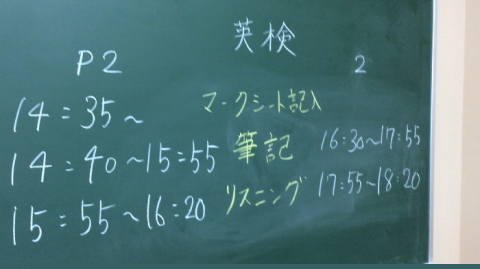 英検
P2 2
14:35~ マークシート記入
14:40~15:55 筆記 16:30~17:55
15:55~16:20 リスニング 17:55~18:20